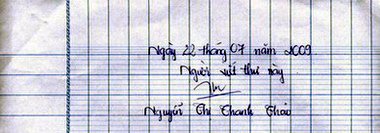 Ngày 22 tháng 07 năm 2009
Người viết thư này
Nguyễn Thị Thanh Thảo